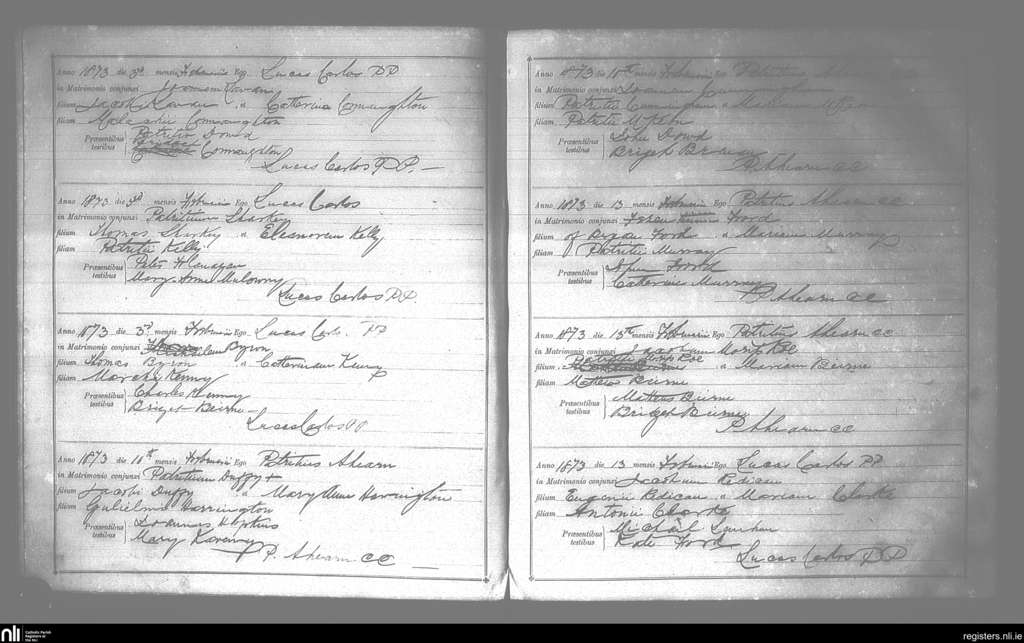 Anno 1873 die 3d mensis Februarii Ego Lucas Carlos PP
in Matrimonio conjunxi Joannem Kavan
filium Jacobi Kavan a Catterina Connaughton
filiam Malachii Connaughton
Præsentibus testibus Patritio Dowd
Connaughton
Lucas Carlos P.P.
Anno 1873 die 3d mensis Februarii Ego Lucas Carlos
in Matrimonio conjunxi Patritium Sharkey
filium Thomas Sharkey a Eleanoram Kelly
filiam Patritii Kelly
Præsentibus testibus Peter Flanagan
Mary Anne Mulowny
Lucas Carlos P.P.
Anno 1873 die 3d mensis Februarii Ego Lucas Carlos PP
in Matrimonio conjunxi Byron
filium Thomas Byron a Catterinam Kenny
filiam Kenny
Præsentibus testibus Charles Kenny
Briget Beirne
Lucas Carlos PP
Anno 1873 die 10th mensis Februarii Ego Patritius Ahearn
in Matrimonio conjunxi Patritium Duffy
filium Jacobi Duffy a Mary Anne Harrington
filiam Gulielmi Harrington
Præsentibus testibus Joannes
Mary
P. Ahearn CC
Anno 1873 die mensis Februarii Ego Patritius
in Matrimonio conjunxi Joannem Cunningham
filium Patritii Cunningham a Mariam
filiam Patritii
Præsentibus testibus John Dowd
Briget
P. Ahearn CC
Anno 1873 die 13 mensis Februarii Ego Patritius Ahearn CC
in Matrimonio conjunxi Foord
filium of Bryan Ford a Mariam Murray
filiam Patritii Murray
Præsentibus testibus Foord
Catterine Murray
P Ahearn CC
Anno 1873 die 13th mensis Februarii Ego Patritius Ahearn CC
in Matrimonio conjunxi Roe
filium Roe a Mariam Beirne
filiam Matheus Beirne
Præsentibus testibus Matheus Beirne
Briget Beirne
P. Ahearn CC
Anno 1873 die 13 mensis Februarii Ego Lucas Carlos PP
in Matrimonio conjunxi Jacobum Redican
filium Eugenii Redican a Mariam Clarke
filiam Antonii Clarke
Præsentibus testibus Michael
Kate Foord
Lucas Carlos P.P.
nli Catholic Parish Registers at the NLI
registers.nli.ie